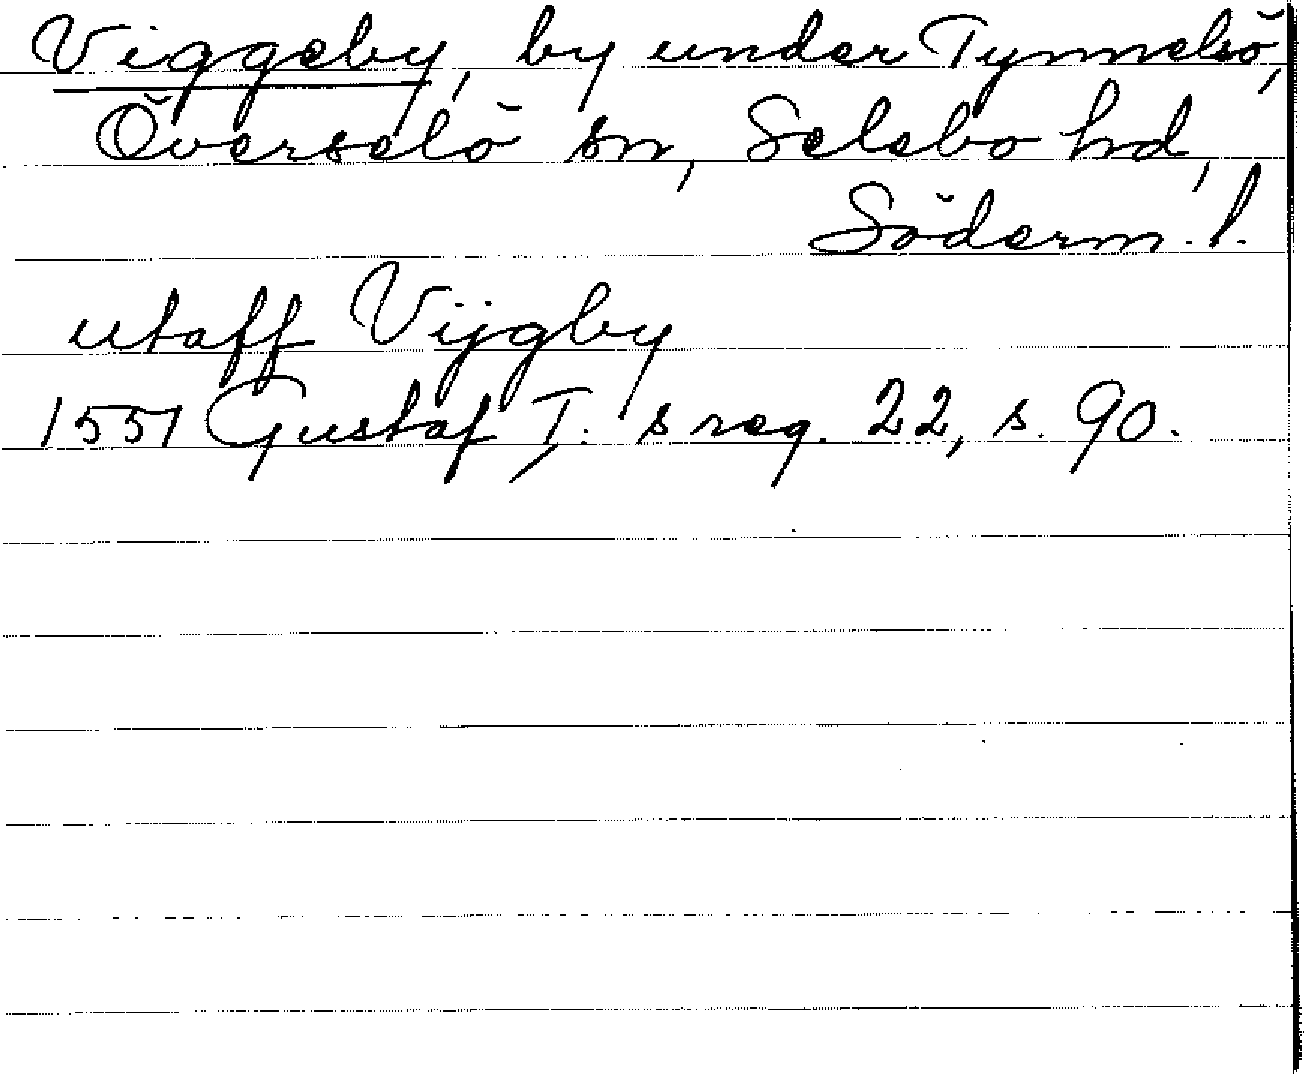 Viggeby, by under Tynnelsö,
Överselö sn, Selebo hd,
Söderm. l.
utaff Vijgby
1551 Gustaf I:s reg. 22, s. 90.